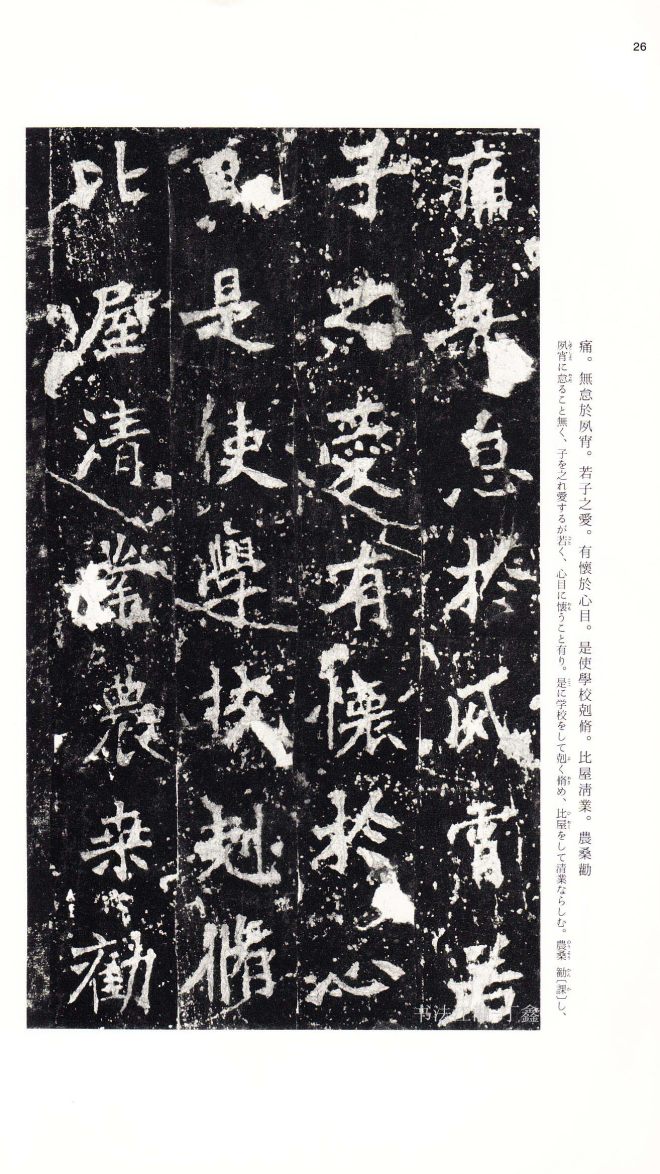 26
痛。無怠於夙宵。若子之愛。有懷於心目。是使學校剋脩。比屋淸業。農桑勸
夙宵に怠ること無く、子を之れ愛するが若く、心目に懐うこと有り。是に学校をして剋く脩め、比屋をして清業ならしむ。農桑 勧[課]し、
痛無怠於夙宵若
子之愛有懷於心
目是使學校剋脩
比屋清業農桑勸